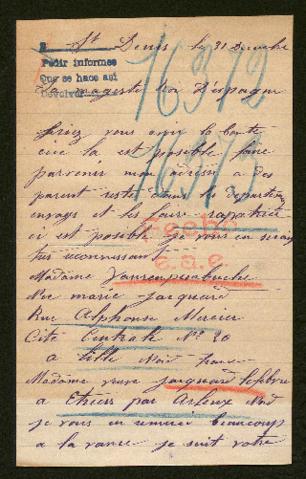 St Denis le 31 Decembre
Pedir informes
Que se hace asi
Devolver
16372
sa magesté roi d'espagne
16373
seriez vous avoir la bonté
ci la est posible faire
parvenir mon adresse a des
parent resté dans le departem
envays et les faire rapatrier
ci est posible je vous en serais
Hecho
tres reconnaissant
e.s.e
Madame
Née marie jacquard
Rue Alphonse Mercier
Cité Centrale No 20
a Lille Nord france
Madame veuve jacquard lefebvre
a par Arleux Nord
je vous en remercie beaucoup
a la vance je suit votre